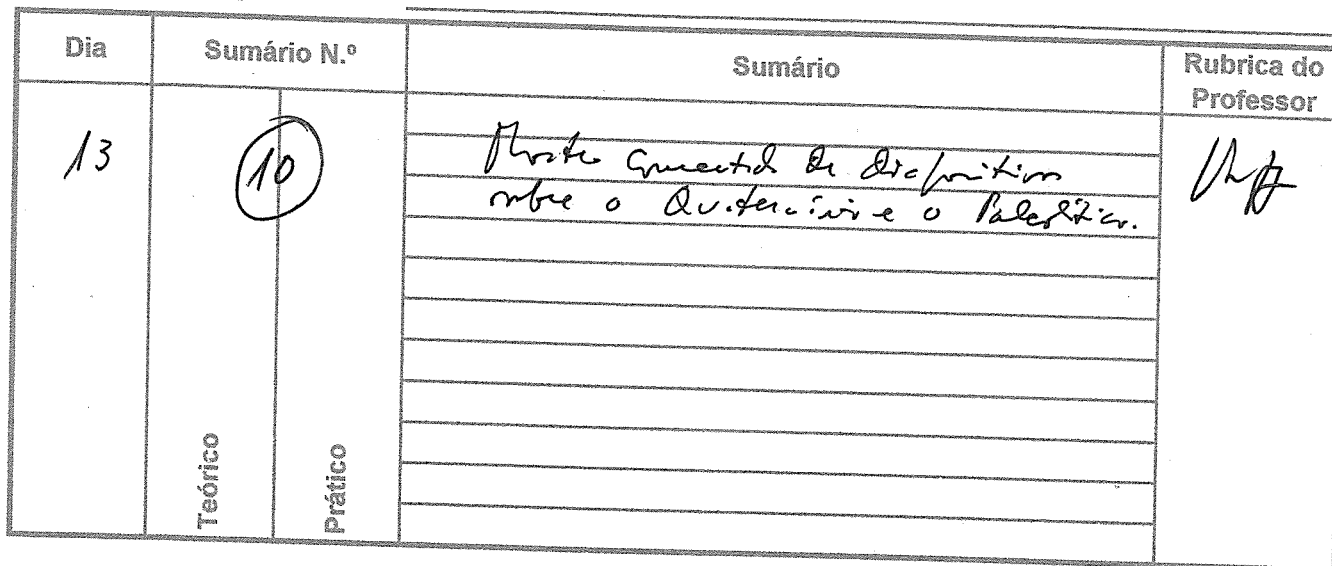 Dia
Sumário N.º
Sumário
Rubrica do
Professor
13
10
Mostra comentada de diapositivos
sobre o Quaternário e o Paleolítico.
Teórico
Prático